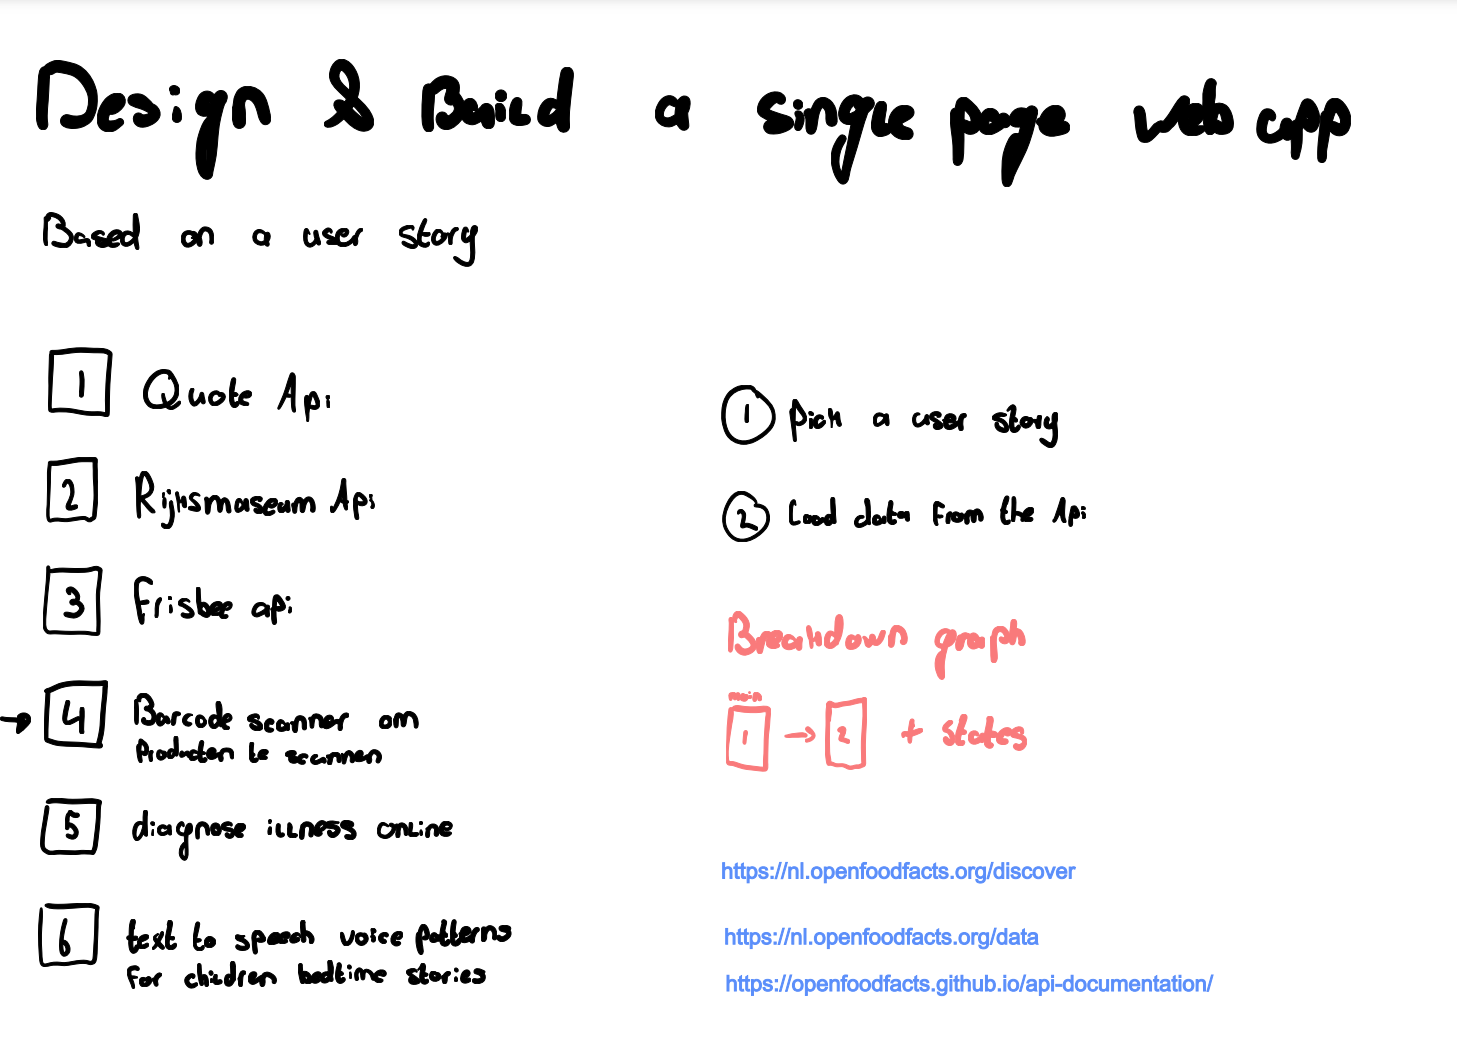 Design & Build a single page web app
Based on a user story
1 Quote Api
2 Rijksmuseum Api
3 Frisbee api
→ 4 Barcode scanner om
Producten te scannen
5 diagnose illness online
6 text to speech voice patterns
For children bedtime stories
1 Pick a user story
2 Load data from the Api
Breakdown graph
main
1 → 2 + states
https://nl.openfoodfacts.org/discover
https://nl.openfoodfacts.org/data
https://openfoodfacts.github.io/api-documentation/